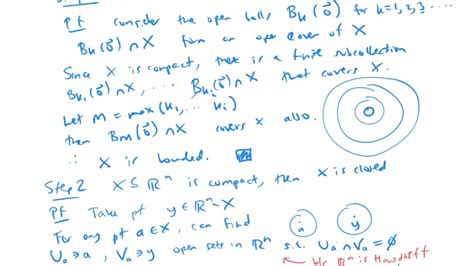 Pf consider the open balls, B_k(0⃗) for k=1,2,3 ....
B_k(0⃗) ∩ X form an open cover of X
Since X is compact, there is a finite subcollection
B_{k_1}(0⃗) ∩ X, ... B_{k_i}(0⃗) ∩ X that covers X.
Let M = max(k_1, ... k_i)
then B_M(0⃗) ∩ X covers X also.
∴ X is bounded.
Step 2 X ⊆ ℝ^n is compact, then X is closed
Pf Take pt y ∈ ℝ^n - X
For any pt a ∈ X, can find
U_a ∋ a, V_a ∋ y open sets in ℝ^n s.t. U_a ∩ V_a = ∅
a y
b/c ℝ^n is Hausdorff